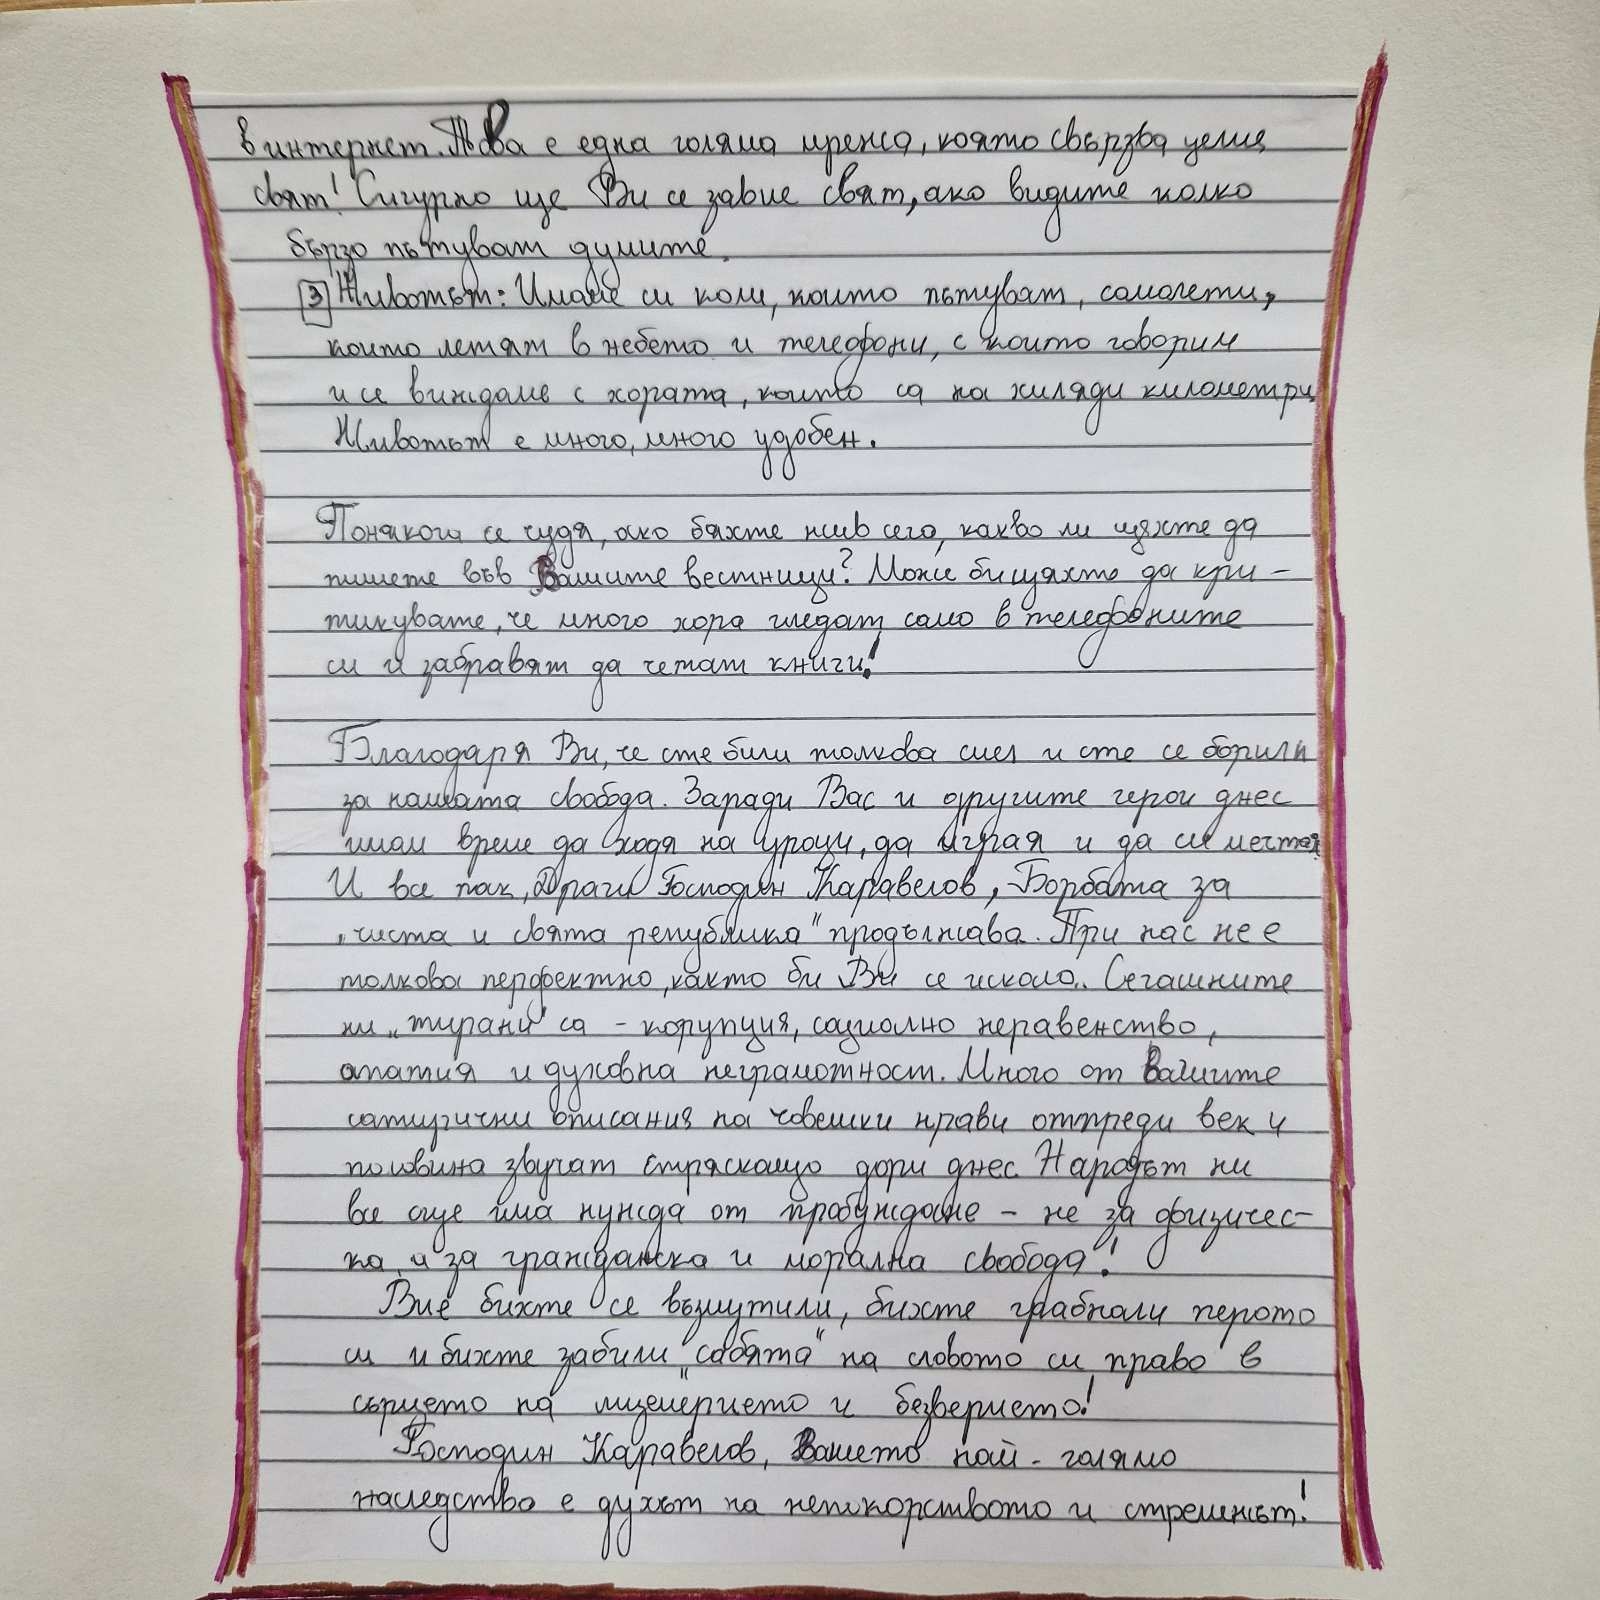 в интернет. Това е една голяма мрежа, която свързва целия
свят! Сигурно ще Ви се завие свят, ако видите колко
бързо пътуват думите.
3 Животът: Имаме си коли, които пътуват, самолети,
които летят в небето и телефони, с които говорим
и се виждаме с хората, които са на хиляди километри
Животът е много, много удобен.
Понякога се чудя, ако бяхте жив сега, какво ли щяхте да
пишете във Вашите вестници? Може би щяхте да кри-
тикувате, че много хора гледат само в телефоните
си и забравят да четат книги!
Благодаря Ви, че сте били толкова смел и сте се борили
за нашата свобода. Заради Вас и другите герои днес
имам време да ходя на уроци, да играя и да си мечтая
И все пак, Драги Господин Каравелов, Борбата за
"чиста и свята република" продължава. При нас не е
толкова перфектно, както би Ви се искало.. Сегашните
ни "тирани" са - корупция, социално неравенство,
апатия и духовна неграмотност. Много от Вашите
сатирични описания на човешки нрави отпреди век и
половина звучат стряскащо дори днес Народът ни
все още има нужда от пробуждане - не за физичес-
ка, а за гражданска и морална свобода!
Вие бихте се възмутили, бихте грабнали перото
си и бихте забили "сабята" на словото си право в
сърцето на лицемерието и безверието!
Господин Каравелов, Вашето най-голямо
наследство е духът на непокорството и стремежът!